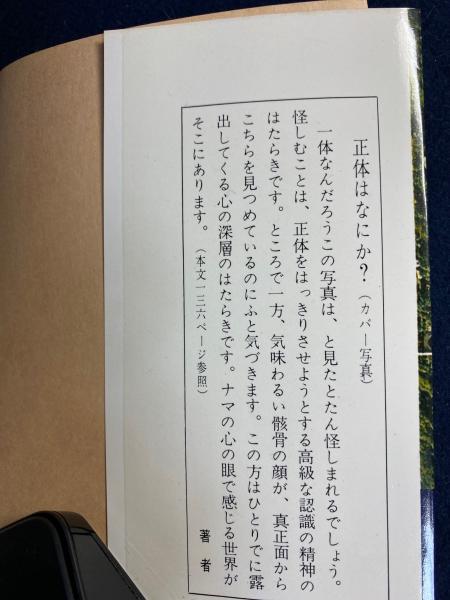 正体はなにか？（カバー写真）
一体なんだろうこの写真は、と見たとたん怪しまれるでしょう。
怪しむことは、正体をはっきりさせようとする高級な認識の精神の
はたらきです。ところで一方、気味わるい骸骨の顔が、真正面から
こちらを見つめているのにふと気づきます。この方はひとりでに露
出してくる心の深層のはたらきです。ナマの心の眼で感じる世界が
そこにあります。（本文一三六ページ参照）
著者